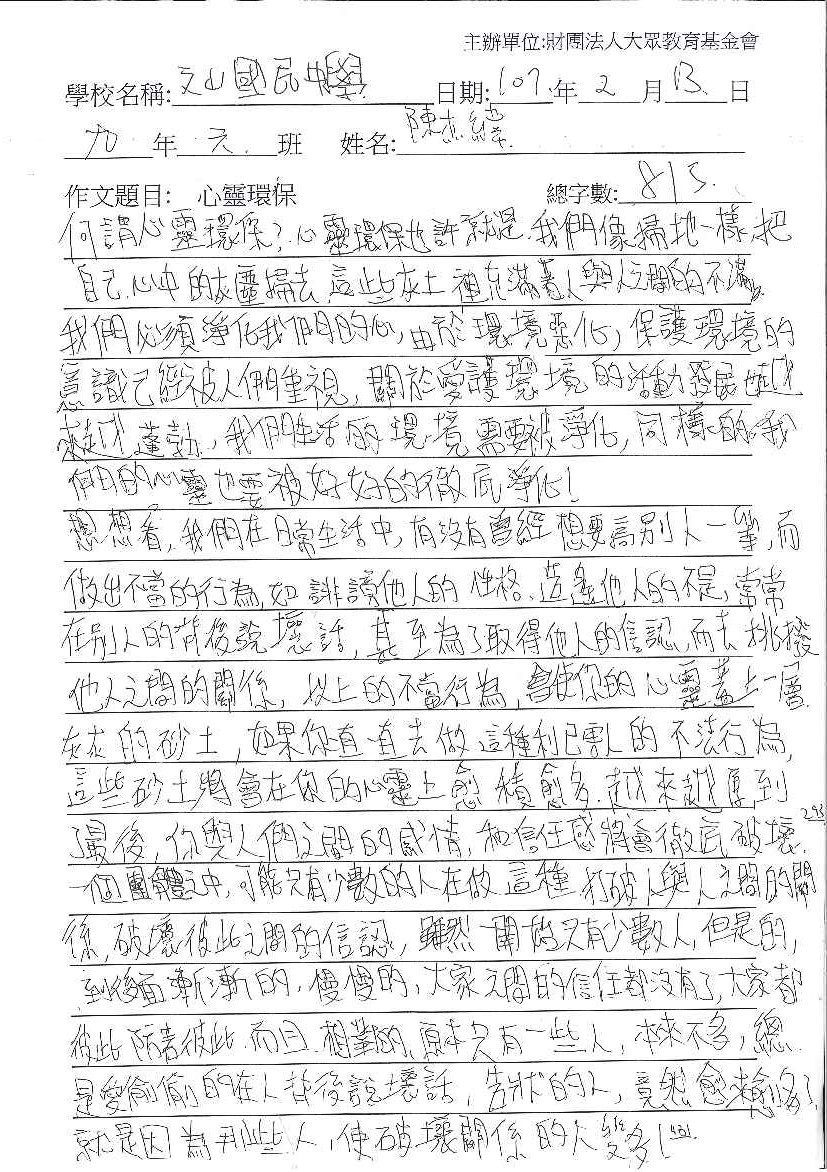 主辦單位:財團法人大眾教育基金會
學校名稱: 文山國民中學 日期: 107 年 2 月 13 日
九 年 元 班 姓名: 陳志緯
作文題目: 心靈環保 總字數: 815.
何謂心靈環保?心靈環保也許就是,我們像掃地一樣,把
自己心中的灰塵掃去,這些灰土裡充滿著人與人之間的不滿,
我們必須淨化我們的心,由於環境惡化,保護環境的
意識已經被人們重視,關於愛護環境的活動發展也越
來越蓬勃,我們生活的環境需要被淨化,同樣的,我
們的心靈也要被好好的徹底淨化!
想想看,我們在日常生活中,有沒有曾經想要高別人一等,而
做出不當的行為,如誹謗他人的性格、造謠他人的不是,常常
在別人的背後說壞話,甚至為了取得他人的信認,而去挑撥
他人之間的關係,以上的不當行為,會使你的心靈蓋上一層
灰灰的砂土,如果你一直去做這種利己害人的不法行為,
這些砂土將會在你的心靈上愈積愈多.越來越厚到
了最後,你與人們之間的感情,和信任感將會徹底破壞.
293
一個團體之中,可能只有少數的人在做這種打破人與人之間的關
係,破壞彼此之間的信認,雖然一開始只有少數人,但是的,
到後面漸漸的,慢慢的,大家之間的信任都沒有了,大家都
彼此防著彼此.而且.相對的,原本只有一些人,本來不多,總
是愛偷偷的在人背後說壞話,告狀的人,竟然愈來愈多了,
就是因為那些人,使破壞關係的人變多!431.